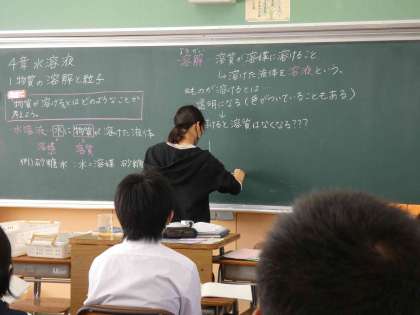 4章 水溶液
1 物質の溶解と粒子
物質が溶けるとはどのようなことか
考えよう。
水溶液 水に物質が溶けた液体
溶媒 溶質
例) 砂糖水:水=溶媒 砂糖
ようかい
溶解 溶質が溶媒に溶けること
↳溶けた液体を溶液という。
ものが溶けるとは
透明になる(色がついていることもある)
けると溶質はなくなる???